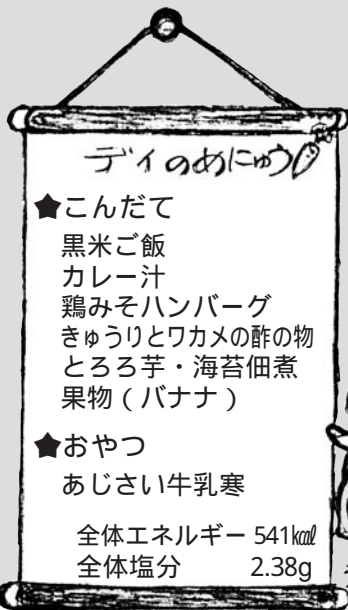 デイのめにゅう
★こんだて
黒米ご飯
カレー汁
鶏みそハンバーグ
きゅうりとワカメの酢の物
とろろ芋・海苔佃煮
果物(バナナ)
★おやつ
あじさい牛乳寒
全体エネルギー 541㎉
全体塩分 2.38g